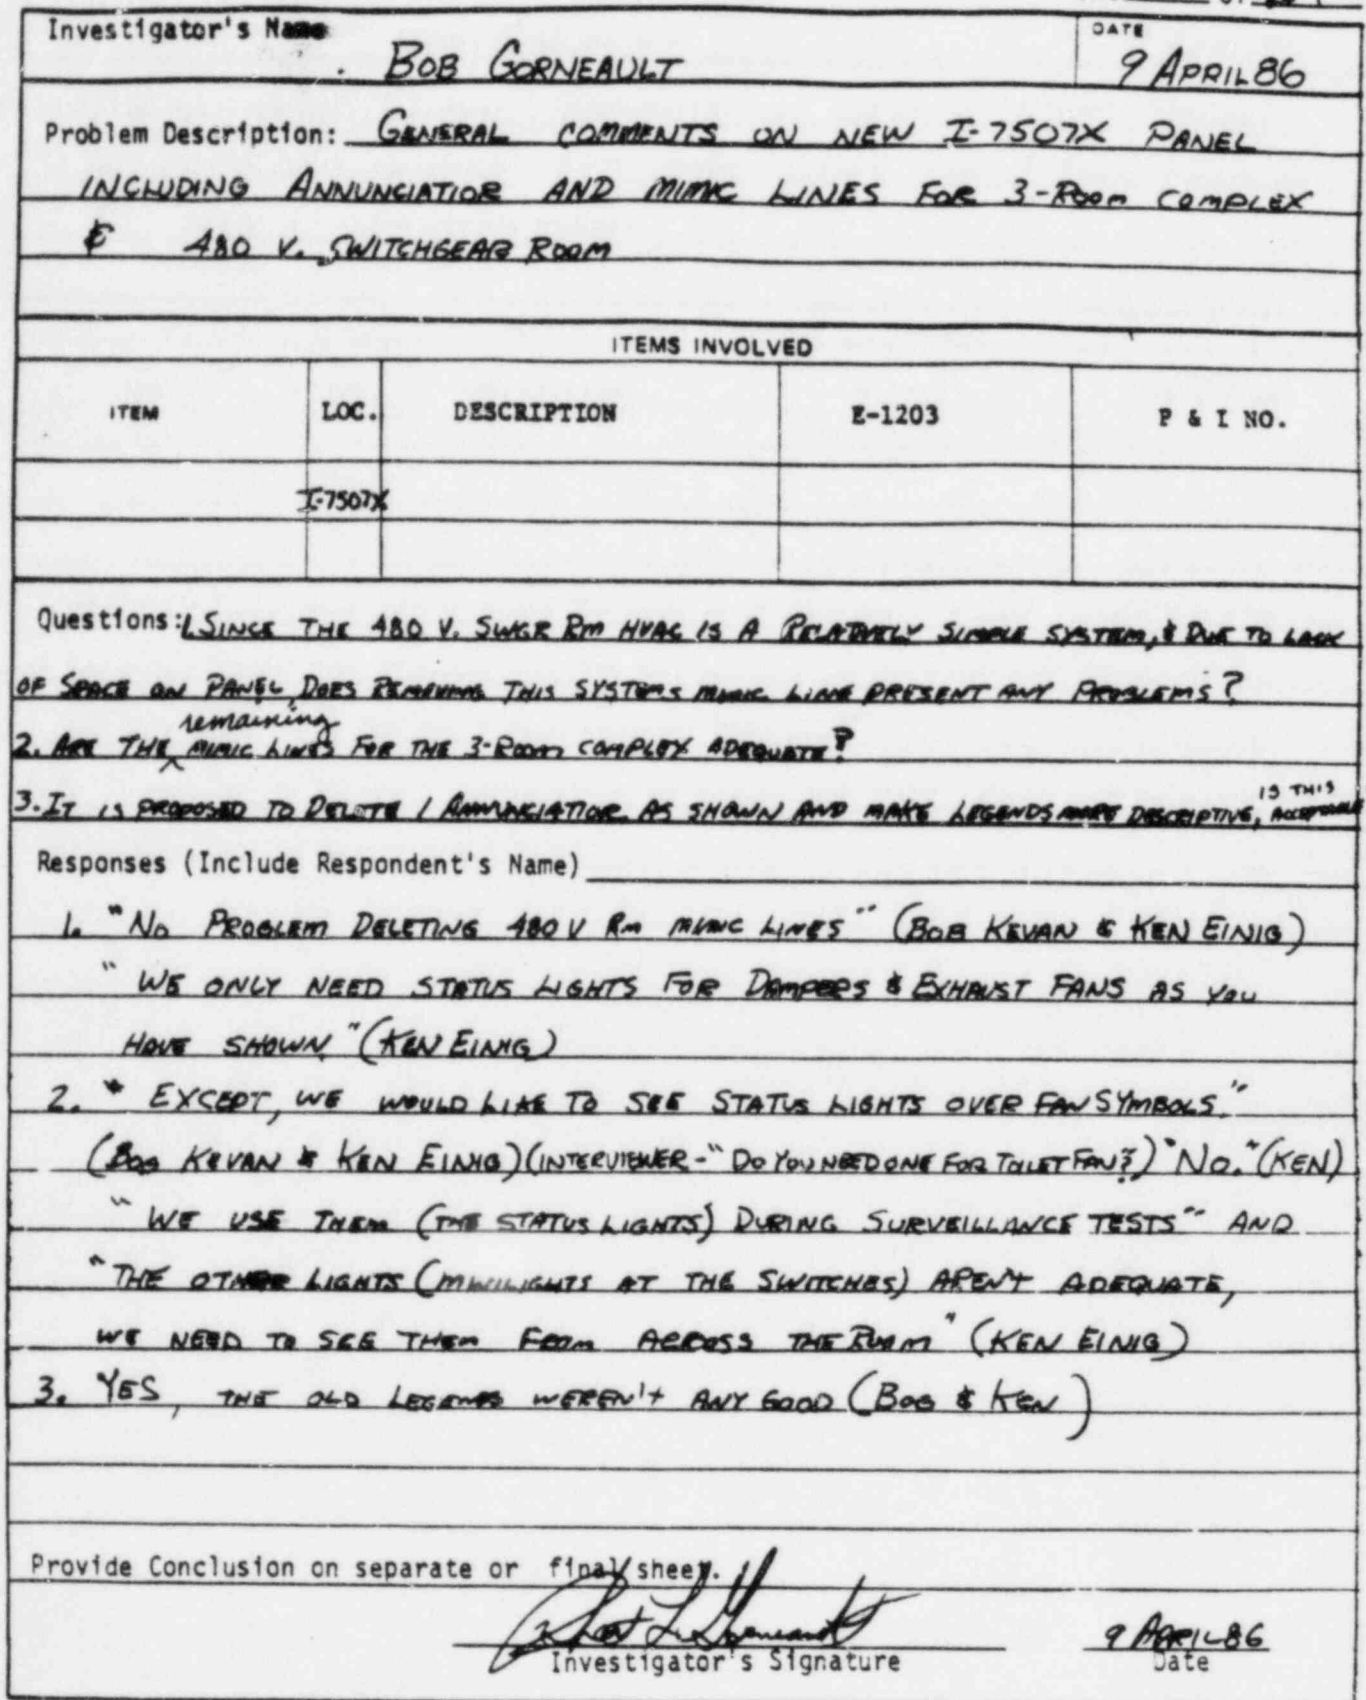 OF
Investigator's Name
DATE
BOB GORNEAULT
9 APRIL 86
Problem Description: GENERAL COMMENTS ON NEW I-7507X PANEL
INCLUDING ANNUNCIATIOR AND MIMIC LINES FOR 3-ROOM COMPLEX
& 480 V. SWITCHGEAR ROOM
ITEMS INVOLVED
ITEM LOC. DESCRIPTION E-1203 P & I NO.
I-7507X
Questions: 1. SINCE THE 480 V. SWGR RM HVAC IS A RELATIVELY SIMPLE SYSTEM, & DUE TO LACK
OF SPACE ON PANEL, DOES REMOVING THIS SYSTEMS MIMIC LINE PRESENT ANY PROBLEMS?
remaining
2. ARE THE ^ MIMIC LINES FOR THE 3-ROOM COMPLEX ADEQUATE?
3. IT IS PROPOSED TO DELETE 1 ANNUNCIATIOR AS SHOWN AND MAKE LEGENDS MORE DESCRIPTIVE, IS THIS ACCEPTABLE
Responses (Include Respondent's Name)
1. "NO PROBLEM DELETING 480 V RM MIMIC LINES" (BOB KEVAN & KEN EINIG)
"WE ONLY NEED STATUS LIGHTS FOR DAMPERS & EXHAUST FANS AS YOU
HAVE SHOWN." (KEN EINIG)
2. "EXCEPT, WE WOULD LIKE TO SEE STATUS LIGHTS OVER FAN SYMBOLS."
(BOB KEVAN & KEN EINIG) (INTERVIEWER - "DO YOU NEED ONE FOR TOILET FAN?) "NO." (KEN)
"WE USE THEM (THE STATUS LIGHTS) DURING SURVEILLANCE TESTS" AND
"THE OTHER LIGHTS (MINILIGHTS AT THE SWITCHES) AREN'T ADEQUATE,
WE NEED TO SEE THEM FROM ACROSS THE ROOM" (KEN EINIG)
3. YES, THE OLD LEGENDS WEREN'T ANY GOOD (BOB & KEN)
Provide Conclusion on separate or final sheet.
9 APRIL 86
Investigator's Signature
Date